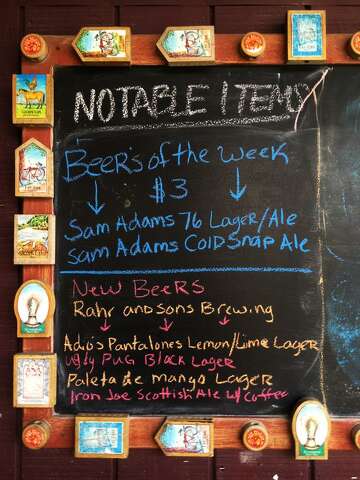 NOTABLE ITEMS
Beer's of the Week
$3
Sam Adams 76 Lager/Ale
Sam Adams Cold Snap Ale
New Beers
Rahr and Sons Brewing
Adio's Pantalones Lemon/Lime Lager
Ugly Pug Black Lager
Paleta de mango Lager
Iron Joe Scottish Ale w/ Coffee